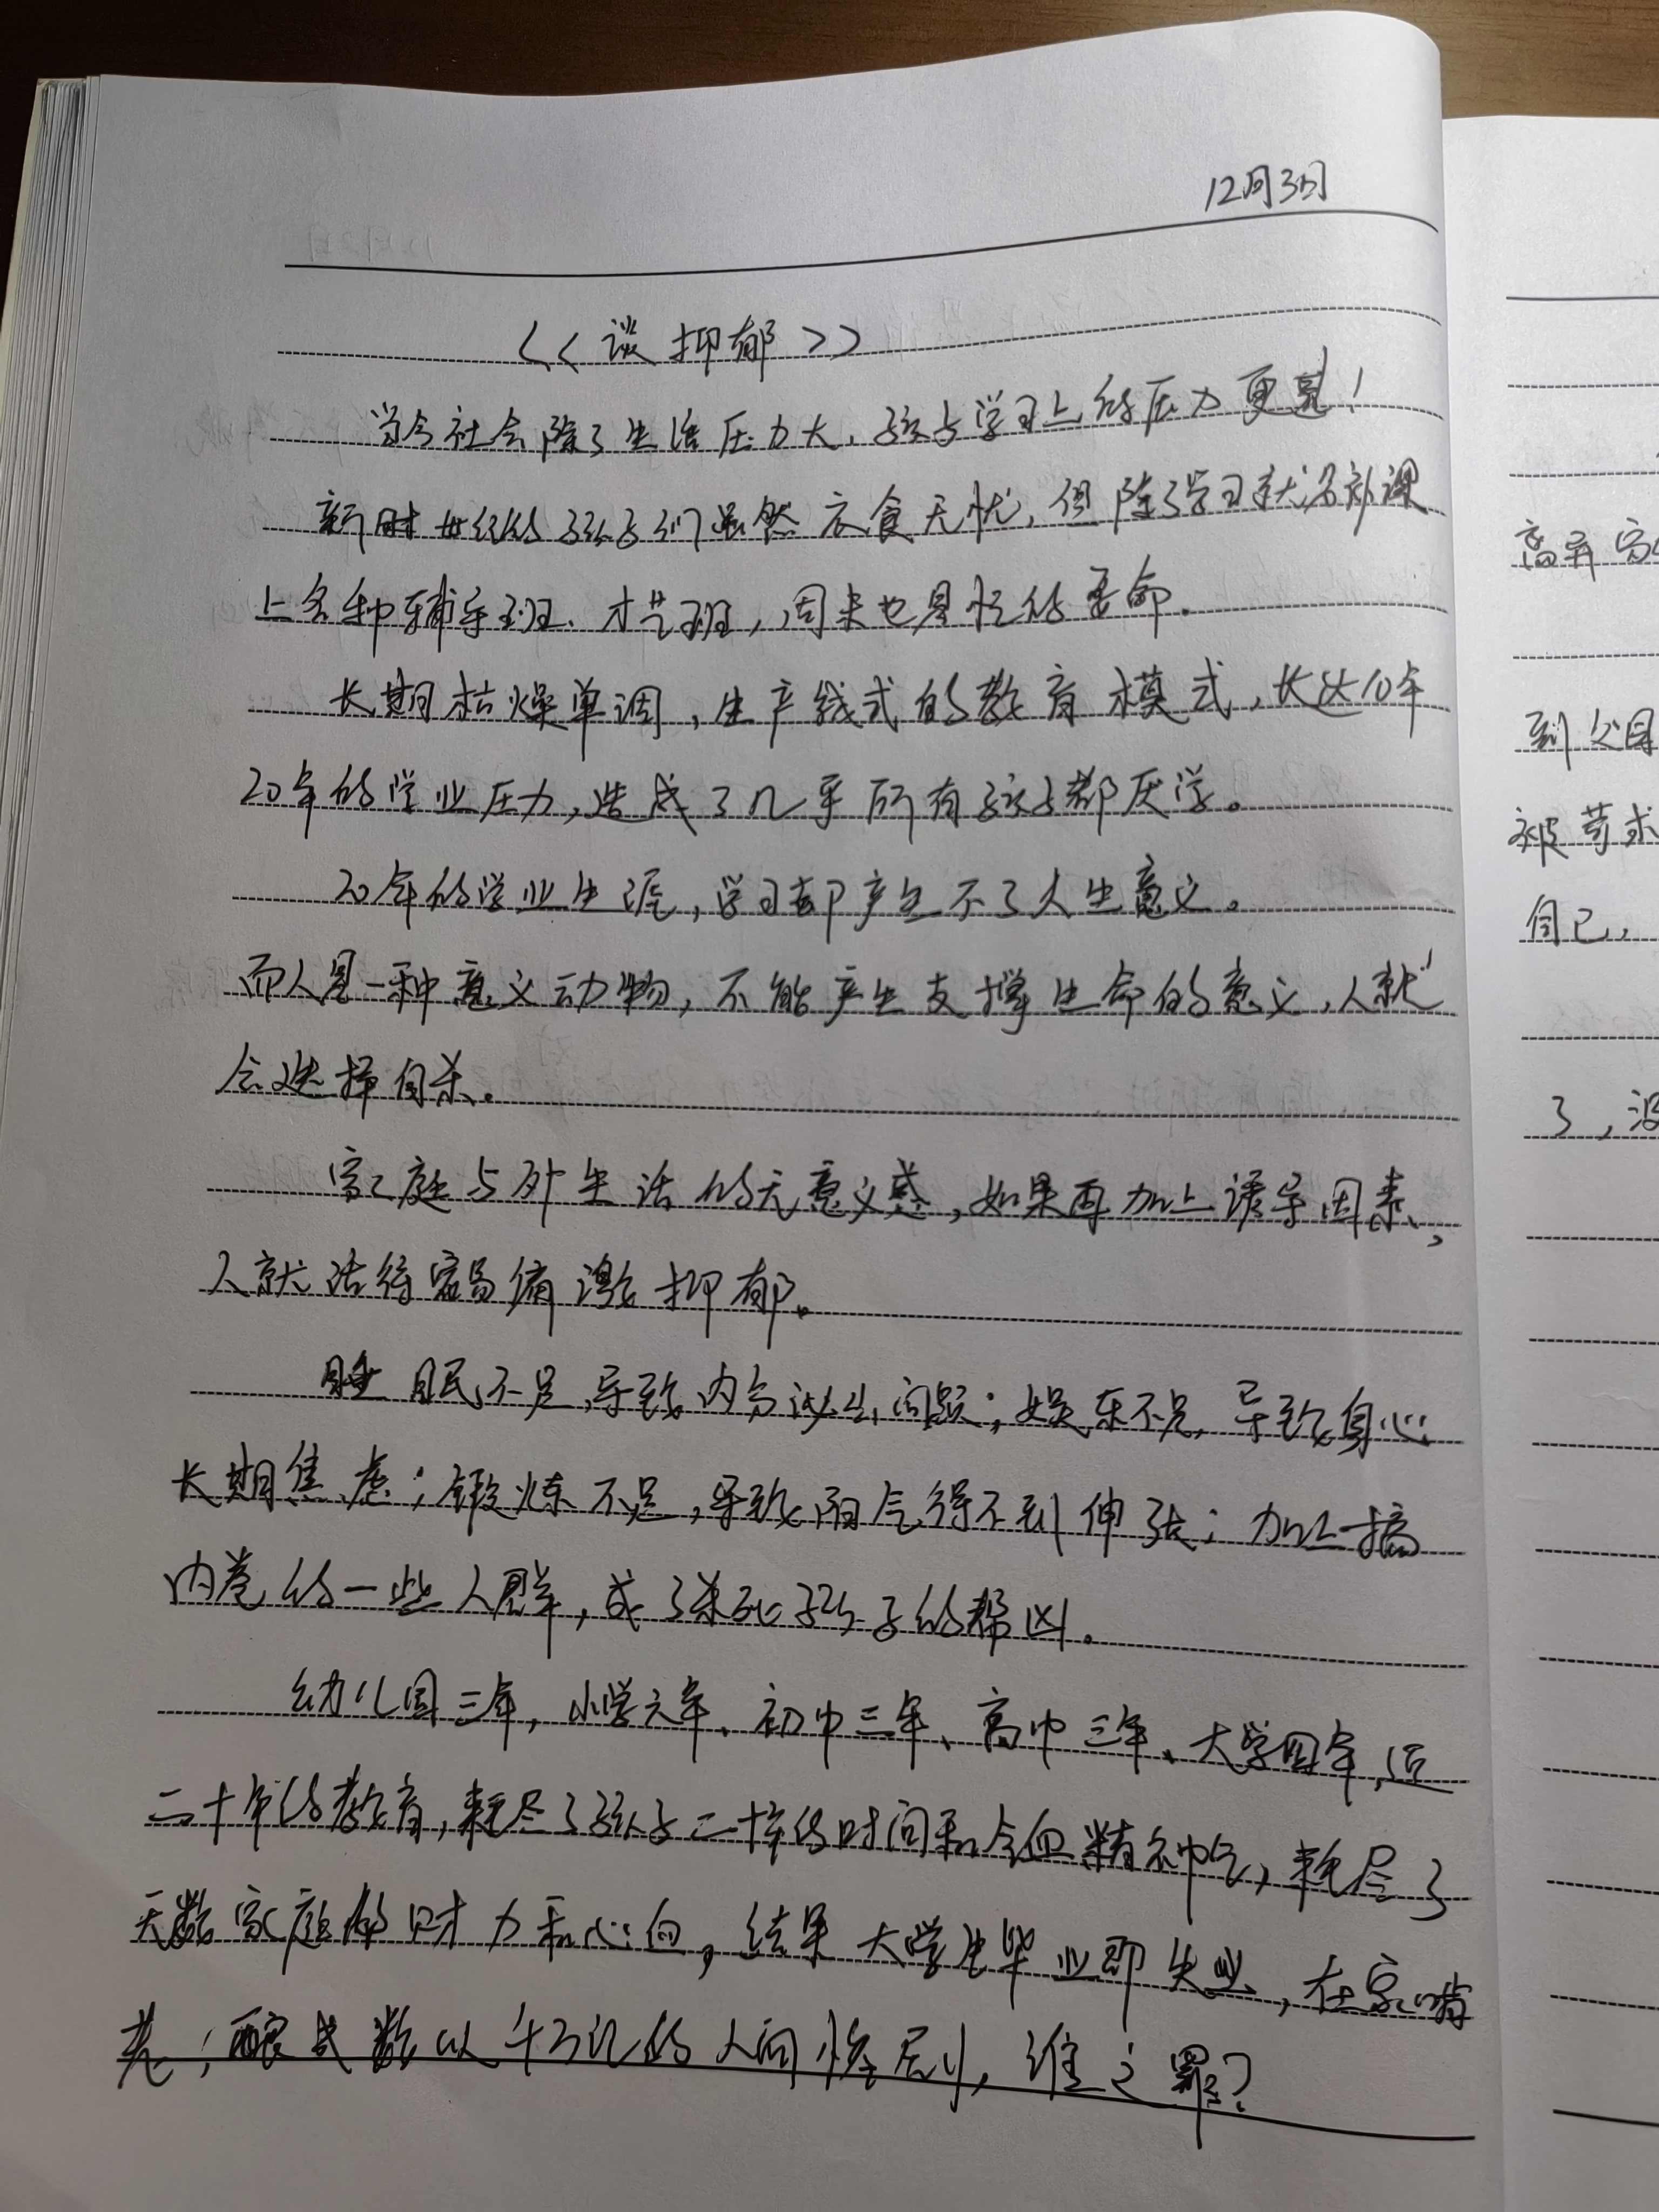 12月3日
<<谈抑郁>>
当今社会除了生活压力大，孩子学习上的压力更是！
新时世纪的孩子们虽然衣食无忧，但除了学习就是补课
上各种辅导班、才艺班，周末也是忙的要命。
长期枯燥单调，生产线式的教育模式，长达10年
20年的学业压力，造成了几乎所有孩子都厌学。
20年的学业生涯，学习却产生不了人生意义。
而人是一种意义动物，不能产生支撑生命的意义，人就
会选择自杀。
家庭与外生活的无意义感，如果再加上诱导因素，
人就活得容易偏激抑郁。
睡眠不足，导致内分泌出问题；娱乐不足，导致身心
长期焦虑；锻炼不足，导致阳气得不到伸张；加上搞
内卷的一些人群，成了杀死孩子的帮凶。
幼儿园三年，小学六年、初中三年、高中三年、大学四年，近
二十年的教育，耗尽了孩子二十年的时间和全血精神气，耗尽了
无数家庭的财力和心血，结果大学生毕业即失业，在家啃
老；酿成数以千万记的人间惨剧，谁之罪？
到父母
被苛求
自己，
了，没